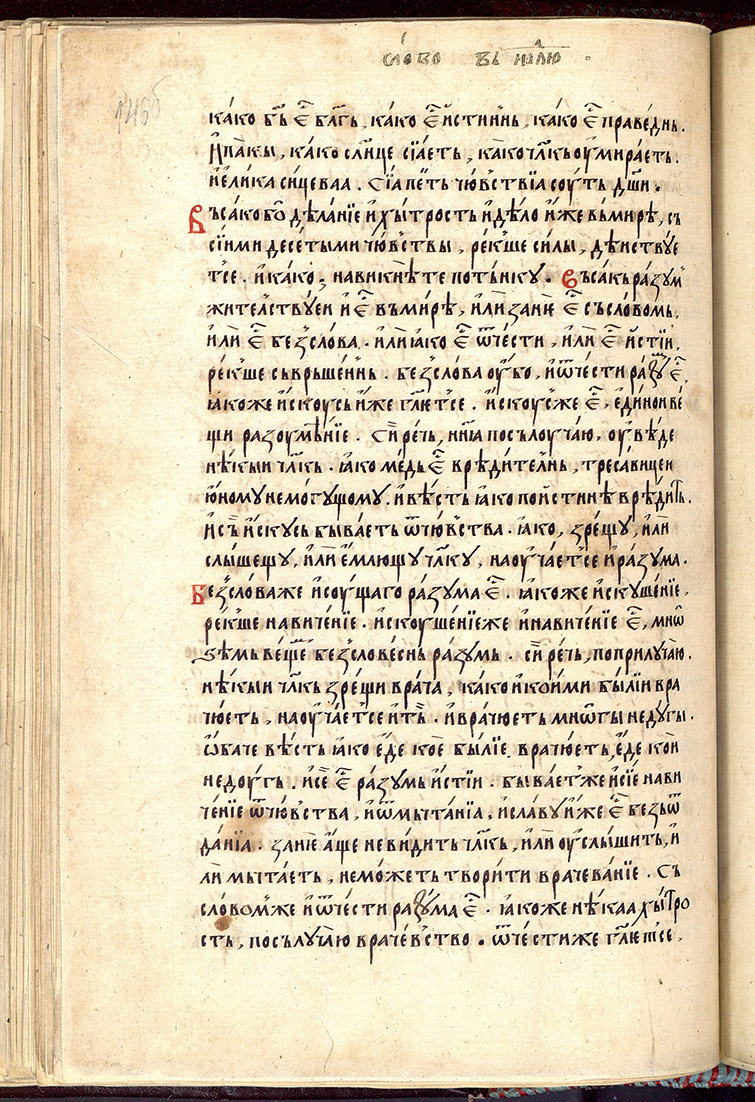 сло́во въ нⷣѣлю
146б
ка́ко бъ҃ є҆ⷭ҇ бл҃гь, ка́ко є҆ⷭ҇ и҆стиннь, ка́ко є҆ⷭ҇ праве́днь.
И҆па́кы, ка́ко сл҃нце сїа́еть, ка́ко чл҃кь ѹ҆мира́еть.
и҆ ели́ка си́цеваа. Сїа пе́ть чю́вьствїа сѹ́ть дш҃и.
Въса́ко бѡ дѣ́ланїе и҆ хы́трость и҆ дѣ́ло и҆́же вь ми́рѣ, съ
сїи́ми десе́тыми чю́вствы, ре́кше си́лы, дѣ́иствꙋе
тсе. и҆ ка́ко; навикнѣ́те пото́нкꙋ. Въса́кь ра́зꙋм
жи́телствꙋеи и҆ є҆ⷭ҇ въ ми́рѣ, и҆лѝ занѐ є҆ⷭ҇ съ сло́вомь,
и҆лѝ є҆ⷭ҇ без̾ сло́ва. и҆лѝ ꙗ҆́ко є҆ⷭ҇ ѿ че́сти, и҆лѝ є҆ⷭ҇ и҆́стїи,
ре́кше съврьше́ннь. без̾ сло́ва ѹ҆́бо, и҆ ѿ че́сти ра́зꙋⷨ є҆ⷭ҇,
ꙗ҆́коже и҆́скѹсь и҆́же гл҃етсе. и҆́скѹсже є҆ⷭ҇, еди́нои ве́
щи разѹмѣ́нїе. Си́ рѣчь, ни҃ꙗ посълѹча́ю, ѹ҆вѣ́де
нѣ́кыи чл҃кь. ꙗ҆́ко ме́дь є҆ⷭ҇ врѣди́телнь, тресави́цеи
ю҆́номꙋ немогꙋ́щомꙋ. и҆ вѣ́сть ꙗ҆́ко пои҆́стинѣ врѣ́дить.
и҆ съ и҆́скꙋсь быва́еть ѿ чю́вства. ꙗ҆́ко, зре́щꙋ, и҆лѝ
слы́шещꙋ, и҆лѝ е҆́млющꙋ чл҃кꙋ, наѹ҆ча́етсе и҆ ра́зꙋма.
Без̾ сло́важе и҆ сѹ́щаго ра́зꙋма є҆ⷭ҇. ꙗ҆́коже и҆скꙋше́нїе,
ре́кше навиче́нїе. и҆скѹше́нїеже и҆ навиче́нїе є҆ⷭ҇, мнѡ́
ѕѣмь веще́мь без̾слове́снь ра́зꙋмь. си́ рѣчь, поприлꙋча́ю.
нѣ́кыи чл҃кь зре́щи врача̀, ка́ко и҆ кои́ми бы́лїи вра
чю́еть, наѹ҆ча́етсе и҆ ть. и҆ врачю́еть мнѡ́гы недꙋ́гы.
ѡ҆́баче вѣ́сть ꙗ҆́ко е҆́де кое́ бы́лїе врачю́еть, е҆́де кои́
недѹ́гь. и҆ се є҆ⷭ҇ ра́зꙋмь и҆́стїи. быва́етже и҆ сїе́ нави
че́нїе ѿ чю́вства, и҆ ѿ мыта́нїа, и҆ сла́вꙋ и҆́же є҆ⷭ҇ безь ѿ
да́нїа. занѐ а҆́ще не ви́дить чл҃кь, и҆лѝ ѹ҆слы́шить, и҆
лѝ мыта́еть, не мо́жеть твори́ти врачева́нїе. Съ
сло́вомже и҆ ѿ че́сти ра́зꙋма є҆ⷭ҇. ꙗ҆́коже нѣ́каа хы́тро
сть, посълꙋча́ю враче́вство. ѿ че́стиже гл҃етсе,